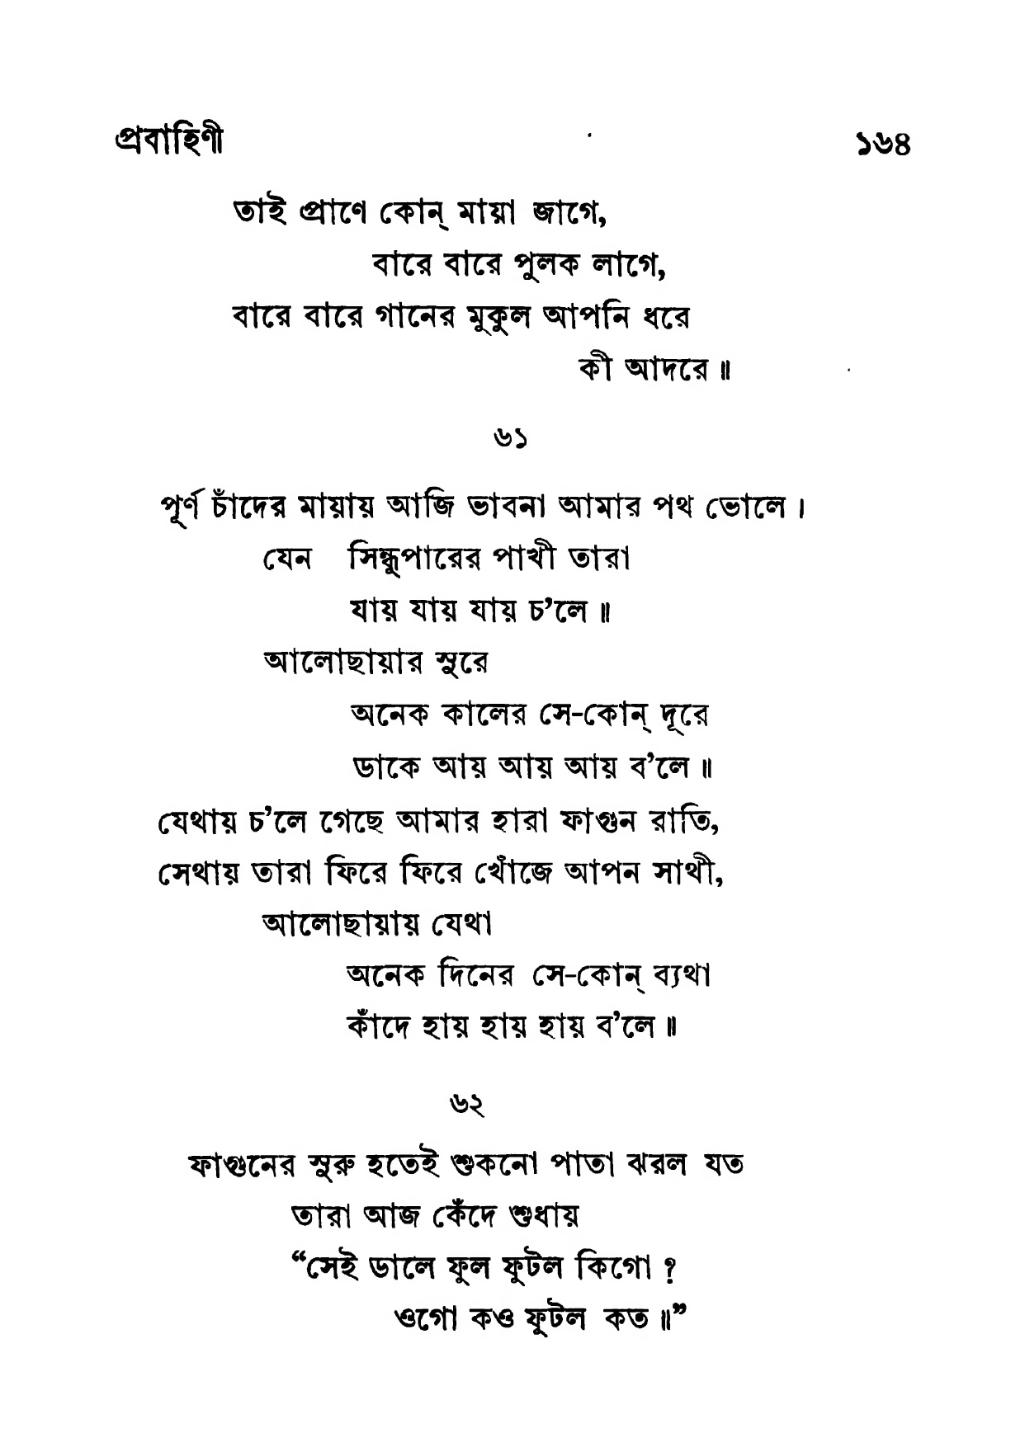 প্রবাহিণী ১৬৪
তাই প্রাণে কোন্ মায়া জাগে,
বারে বারে পুলক লাগে,
বারে বারে গানের মুকুল আপনি ধরে
কী আদরে॥
৬১
পূর্ণ চাঁদের মায়ায় আজি ভাবনা আমার পথ ভোলে।
যেন সিন্ধুপারের পাখী তারা
যায় যায় যায় চ’লে॥
আলোছায়ার সুরে
অনেক কালের সে-কোন্ দূরে
ডাকে আয় আয় আয় ব’লে॥
যেথায় চ’লে গেছে আমার হারা ফাগুন রাতি,
সেথায় তারা ফিরে ফিরে খোঁজে আপন সাথী,
আলোছায়ায় যেথা
অনেক দিনের সে-কোন্ ব্যথা
কাঁদে হায় হায় হায় ব’লে॥
৬২
ফাগুনের সুরু হতেই শুকনো পাতা ঝরল যত
তারা আজ কেঁদে শুধায়
“সেই ডালে ফুল ফুটল কিগো?
ওগো কও ফুটল কত॥”